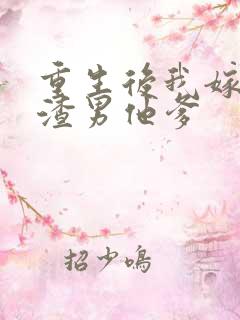 重生後我嫁
渣男他爹
招少鳴